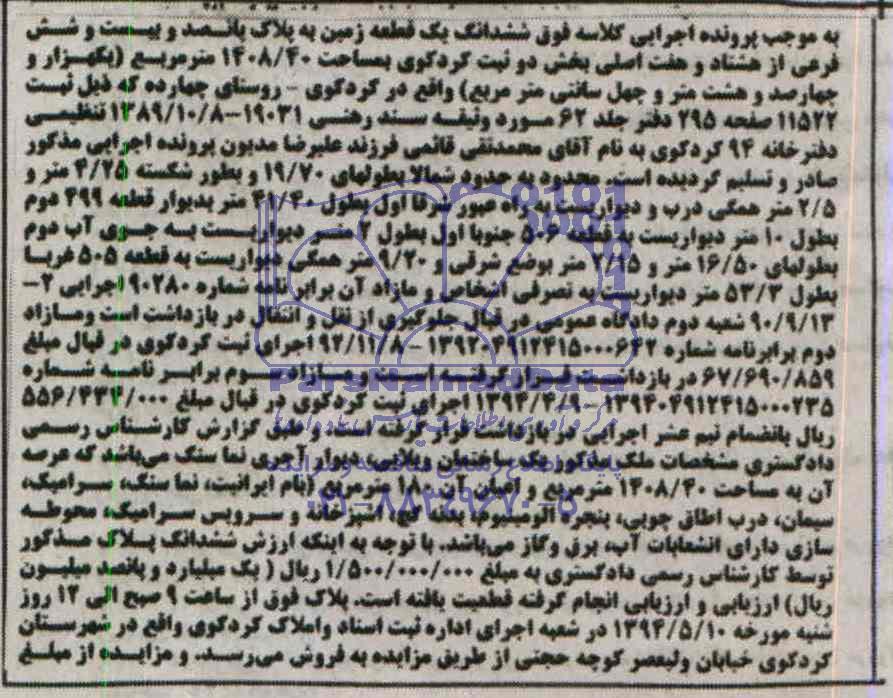 به موجب پرونده اجرایی کلاسه فوق ششدانگ یک قطعه زمین به پلاک پانصد و بیست و شش
فرعی از هشتاد و هفت اصلی بخش دو ثبت کردکوی بمساحت ۱۴۰۸/۴۰ مترمربع (یکهزار و
چهارصد و هشت متر و چهل سانتی متر مربع) واقع در کردکوی - روستای چهارده که ذیل ثبت
۱۱۵۲۲ صفحه ۲۹۵ دفتر جلد ۶۲ مورد وثیقه سند رهنی ۱۹۰۳۱-۱۳۸۹/۱۰/۸ تنظیمی
دفترخانه ۹۴ کردکوی به نام آقای محمدتقی قائمی فرزند علیرضا مدیون پرونده اجرایی مذکور
صادر و تسلیم گردیده است. محدود به حدود شمالا بطولهای ۱۹/۷۰ و بطور شکسته ۴/۲۵ متر و
۲/۵ متر همگی درب و دیواریست به راه عبور شرقا اول بطول ۴۱/۴۰ متر بدیوار قطعه ۴۹۹ دوم
بطول ۱۰ متر دیواریست به قطعه ۵۰۶ جنوبا اول بطول ۲ متر دیواریست به جوی آب دوم
بطولهای ۱۶/۵۰ متر و ۲/۲۵ متر بوضع شرقی و ۹/۲۰ متر همگی دیواریست به قطعه ۵۰۵ غربا
بطول ۵۳/۳ متر دیواریست به تصرفی اشخاص و مازاد آن برابر نامه شماره ۹۰۲۸۰ اجرایی ۲-
۹۰/۹/۱۳ شعبه دوم دادگاه عمومی در قبال جلوگیری از نقل و انتقال در بازداشت است ومازاد
دوم برابرنامه شماره ۱۳۹۲۰۴۹۱۲۴۱۵۰۰۰۶۴۲ - ۹۲/۱۱/۸ اجرای ثبت کردکوی در قبال مبلغ
۶۷/۶۹۰/۸۵۹ در بازداشت قرار گرفته است و مازاد سوم برابر نامه شماره
۱۳۹۴۰۴۹۱۲۴۱۵۰۰۰۲۳۵ - ۱۳۹۴/۴/۹ اجرای ثبت کردکوی در قبال مبلغ ۵۵۶/۴۳۴/۰۰۰
ریال بانضمام نیم عشر اجرایی در بازداشت قرار گرفته است. و طبق گزارش کارشناس رسمی
دادگستری مشخصات ملک مذکور یک ساختمان ویلایی، دیوار آجری نما سنگ می‌باشد که عرصه
آن به مساحت ۱۴۰۸/۴۰ مترمربع و اعیان آن ۱۸۰ مترمربع (بام ایرانیت، نما سنگ، سرامیک،
سیمان، درب اطاق چوبی، پنجره آلومینیوم، بدنه گچ، آشپزخانه و سرویس سرامیک، محوطه
سازی دارای انشعابات آب، برق وگاز می‌باشد. با توجه به اینکه ارزش ششدانگ پلاک مذکور
توسط کارشناس رسمی دادگستری به مبلغ ۱/۵۰۰/۰۰۰/۰۰۰ ریال ( یک میلیارد و پانصد میلیون
ریال) ارزیابی و ارزیابی انجام گرفته قطعیت یافته است. پلاک فوق از ساعت ۹ صبح الی ۱۲ روز
شنبه مورخه ۱۳۹۴/۵/۱۰ در شعبه اجرای اداره ثبت اسناد واملاک کردکوی واقع در شهرستان
کردکوی خیابان ولیعصر کوچه حجتی از طریق مزایده به فروش می‌رسد. و مزایده از مبلغ
ParsNamadData